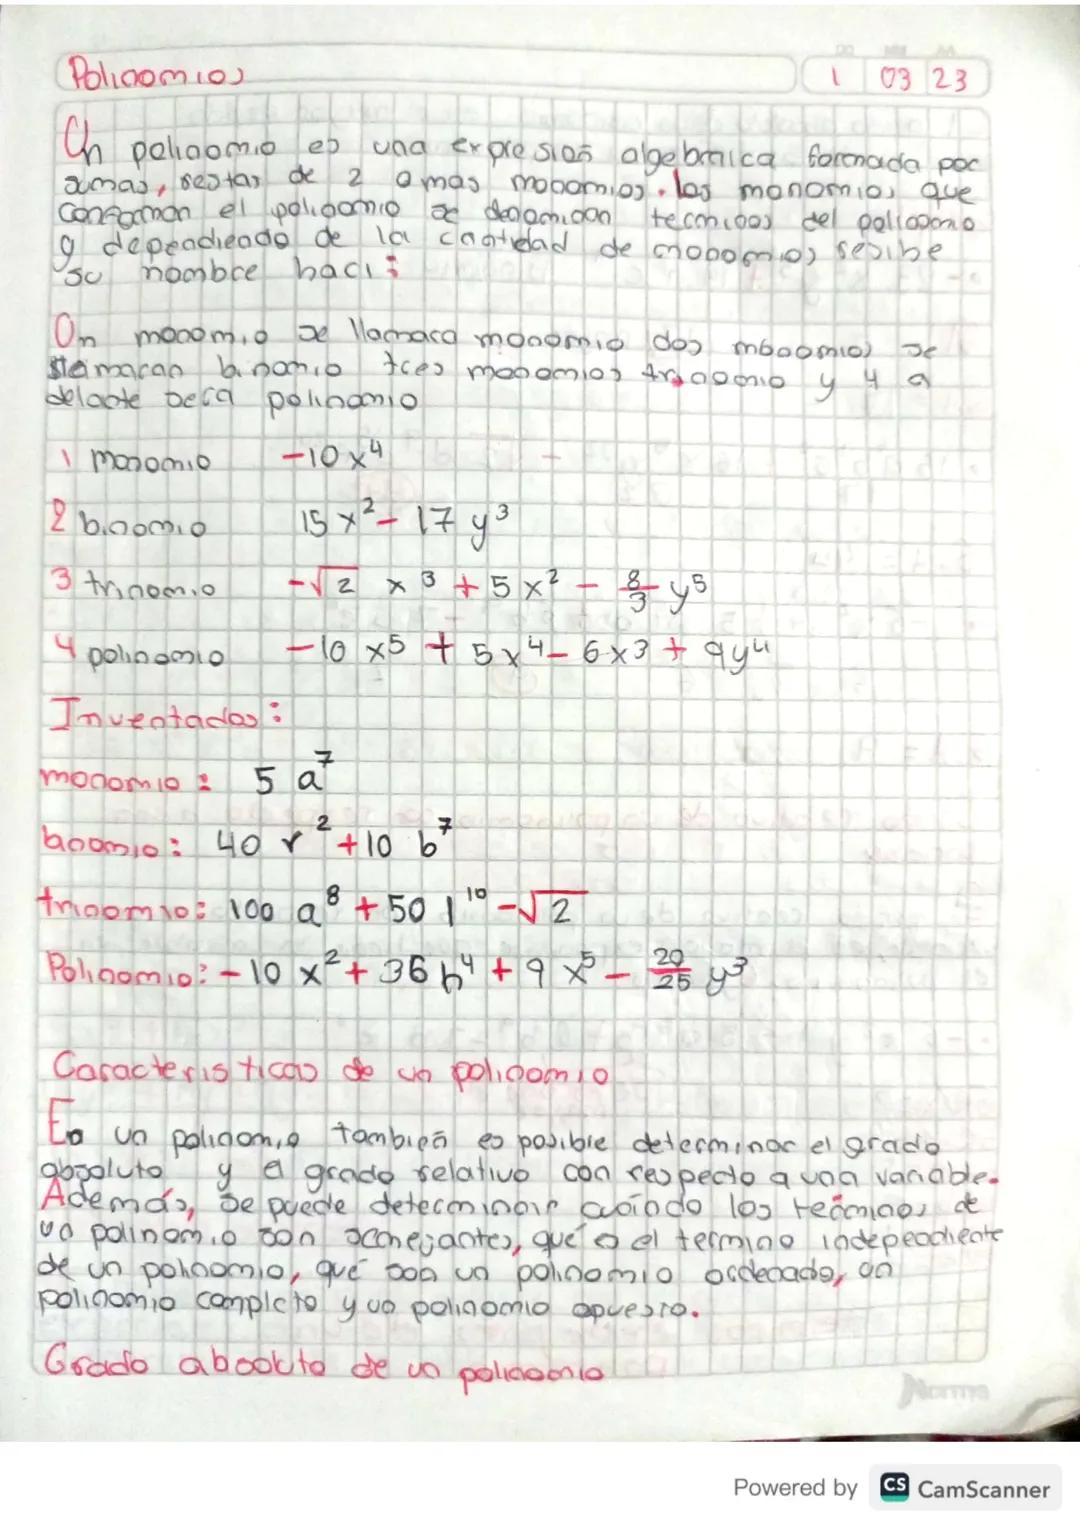 Polinomios
DD MM AA
1 03 23
Un polinomio es una expresion algebraica formada por
sumas, restas de 2 o mas monomios. los monomios que
conforman el polinomio se denominan terminos del polinomio
y dependiendo de la cantidad de monomios resibe
su nombre haci:
Un monomio se llamara monomio dos mboomios se
llamaran binomio tres monomios trinomio y 4 a
delante sera polinomio
1 monomio −10x⁴
2 binomio 15x² − 17y³
3 trinomio −√2 x³ + 5x² − 8/3 y⁵
4 polinomio −10x⁵ + 5x⁴ − 6x3 + 9y⁴
Inventados:
monomio: 5 a⁷
boomio: 40 r² + 10 b⁷
trinomio: 100 a⁸ + 50 l¹⁰ − √2
Polinomio: −10x² + 36h⁴ + 9x⁵ − 20/25 y³
Caracteristicas de un polinomio
En un polinomio también es posible determinar el grado
absoluto y el grado relativo con respecto a una variable.
Además, se puede determinar cuándo los términos de
un polinomio son semejantes, qué es el termino independiente
de un polinomio, qué son un polinomio ordenado, un
polinomio completo y un polinomio opuesto.
Grado absoluto de un polinomio
Norma
Powered by CS CamScanner